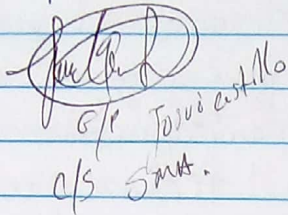 G/P Josué Castillo
C/S SMA.